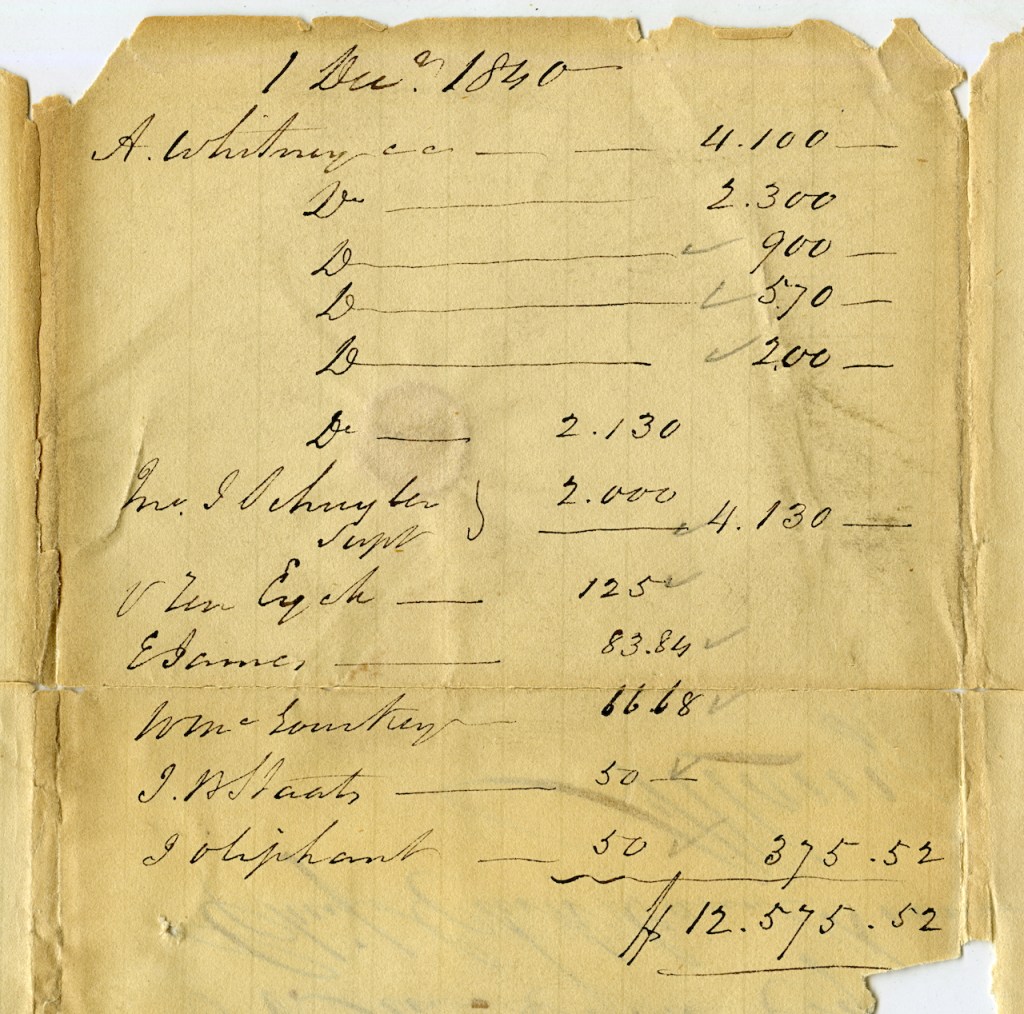 1 Decr. 1840
A. Whitney — — 4.100 —
Do — 2.300
D — 900 —
D — 570 —
D — 200 —
Do — 2.130
Jno. I Schuyler } 2.000
Supt 4.130 —
V Ten Eyck — 125
E James — 83.84
Wm 66.68
J. B Staats — 50 —
J Oliphant — 50 375.52
$ 12.575.52